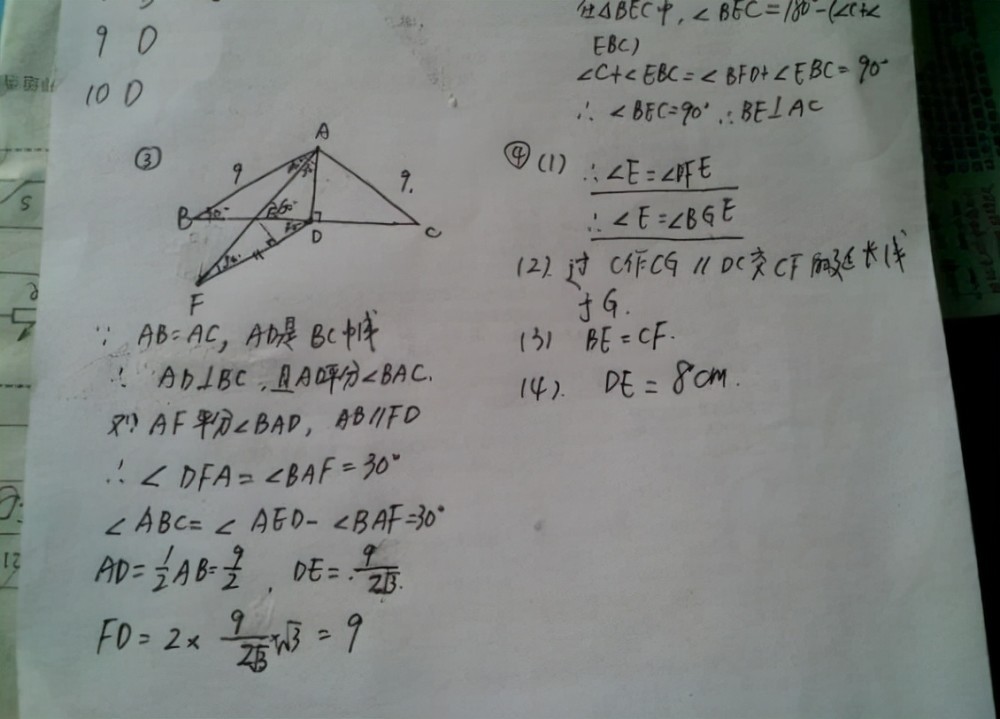 9 D
10 D
在△BEC中,∠BEC=180°-(∠C+∠
EBC)
∠C+∠EBC=∠BFD+∠EBC=90°
∴ ∠BEC=90° ∴BE⊥AC
③
A
9
9.
B
30°
E
60°
D
C
30°
F
∵ AB=AC, AD是BC中线
∴ AD⊥BC,且AD平分∠BAC.
又∵AF平分∠BAD, AB//FD
∴ ∠DFA=∠BAF=30°
∠ABC=∠AED-∠BAF=30°
AD=1/2AB=9/2, DE=9/2√3
FD=2×9/2√3×√3=9
④(1) ∴∠E=∠DFE
∴∠E=∠BGE
(2). 过C作CG//DC交CF的延长线
于G.
(3) BE=CF.
(4). DE=8cm.